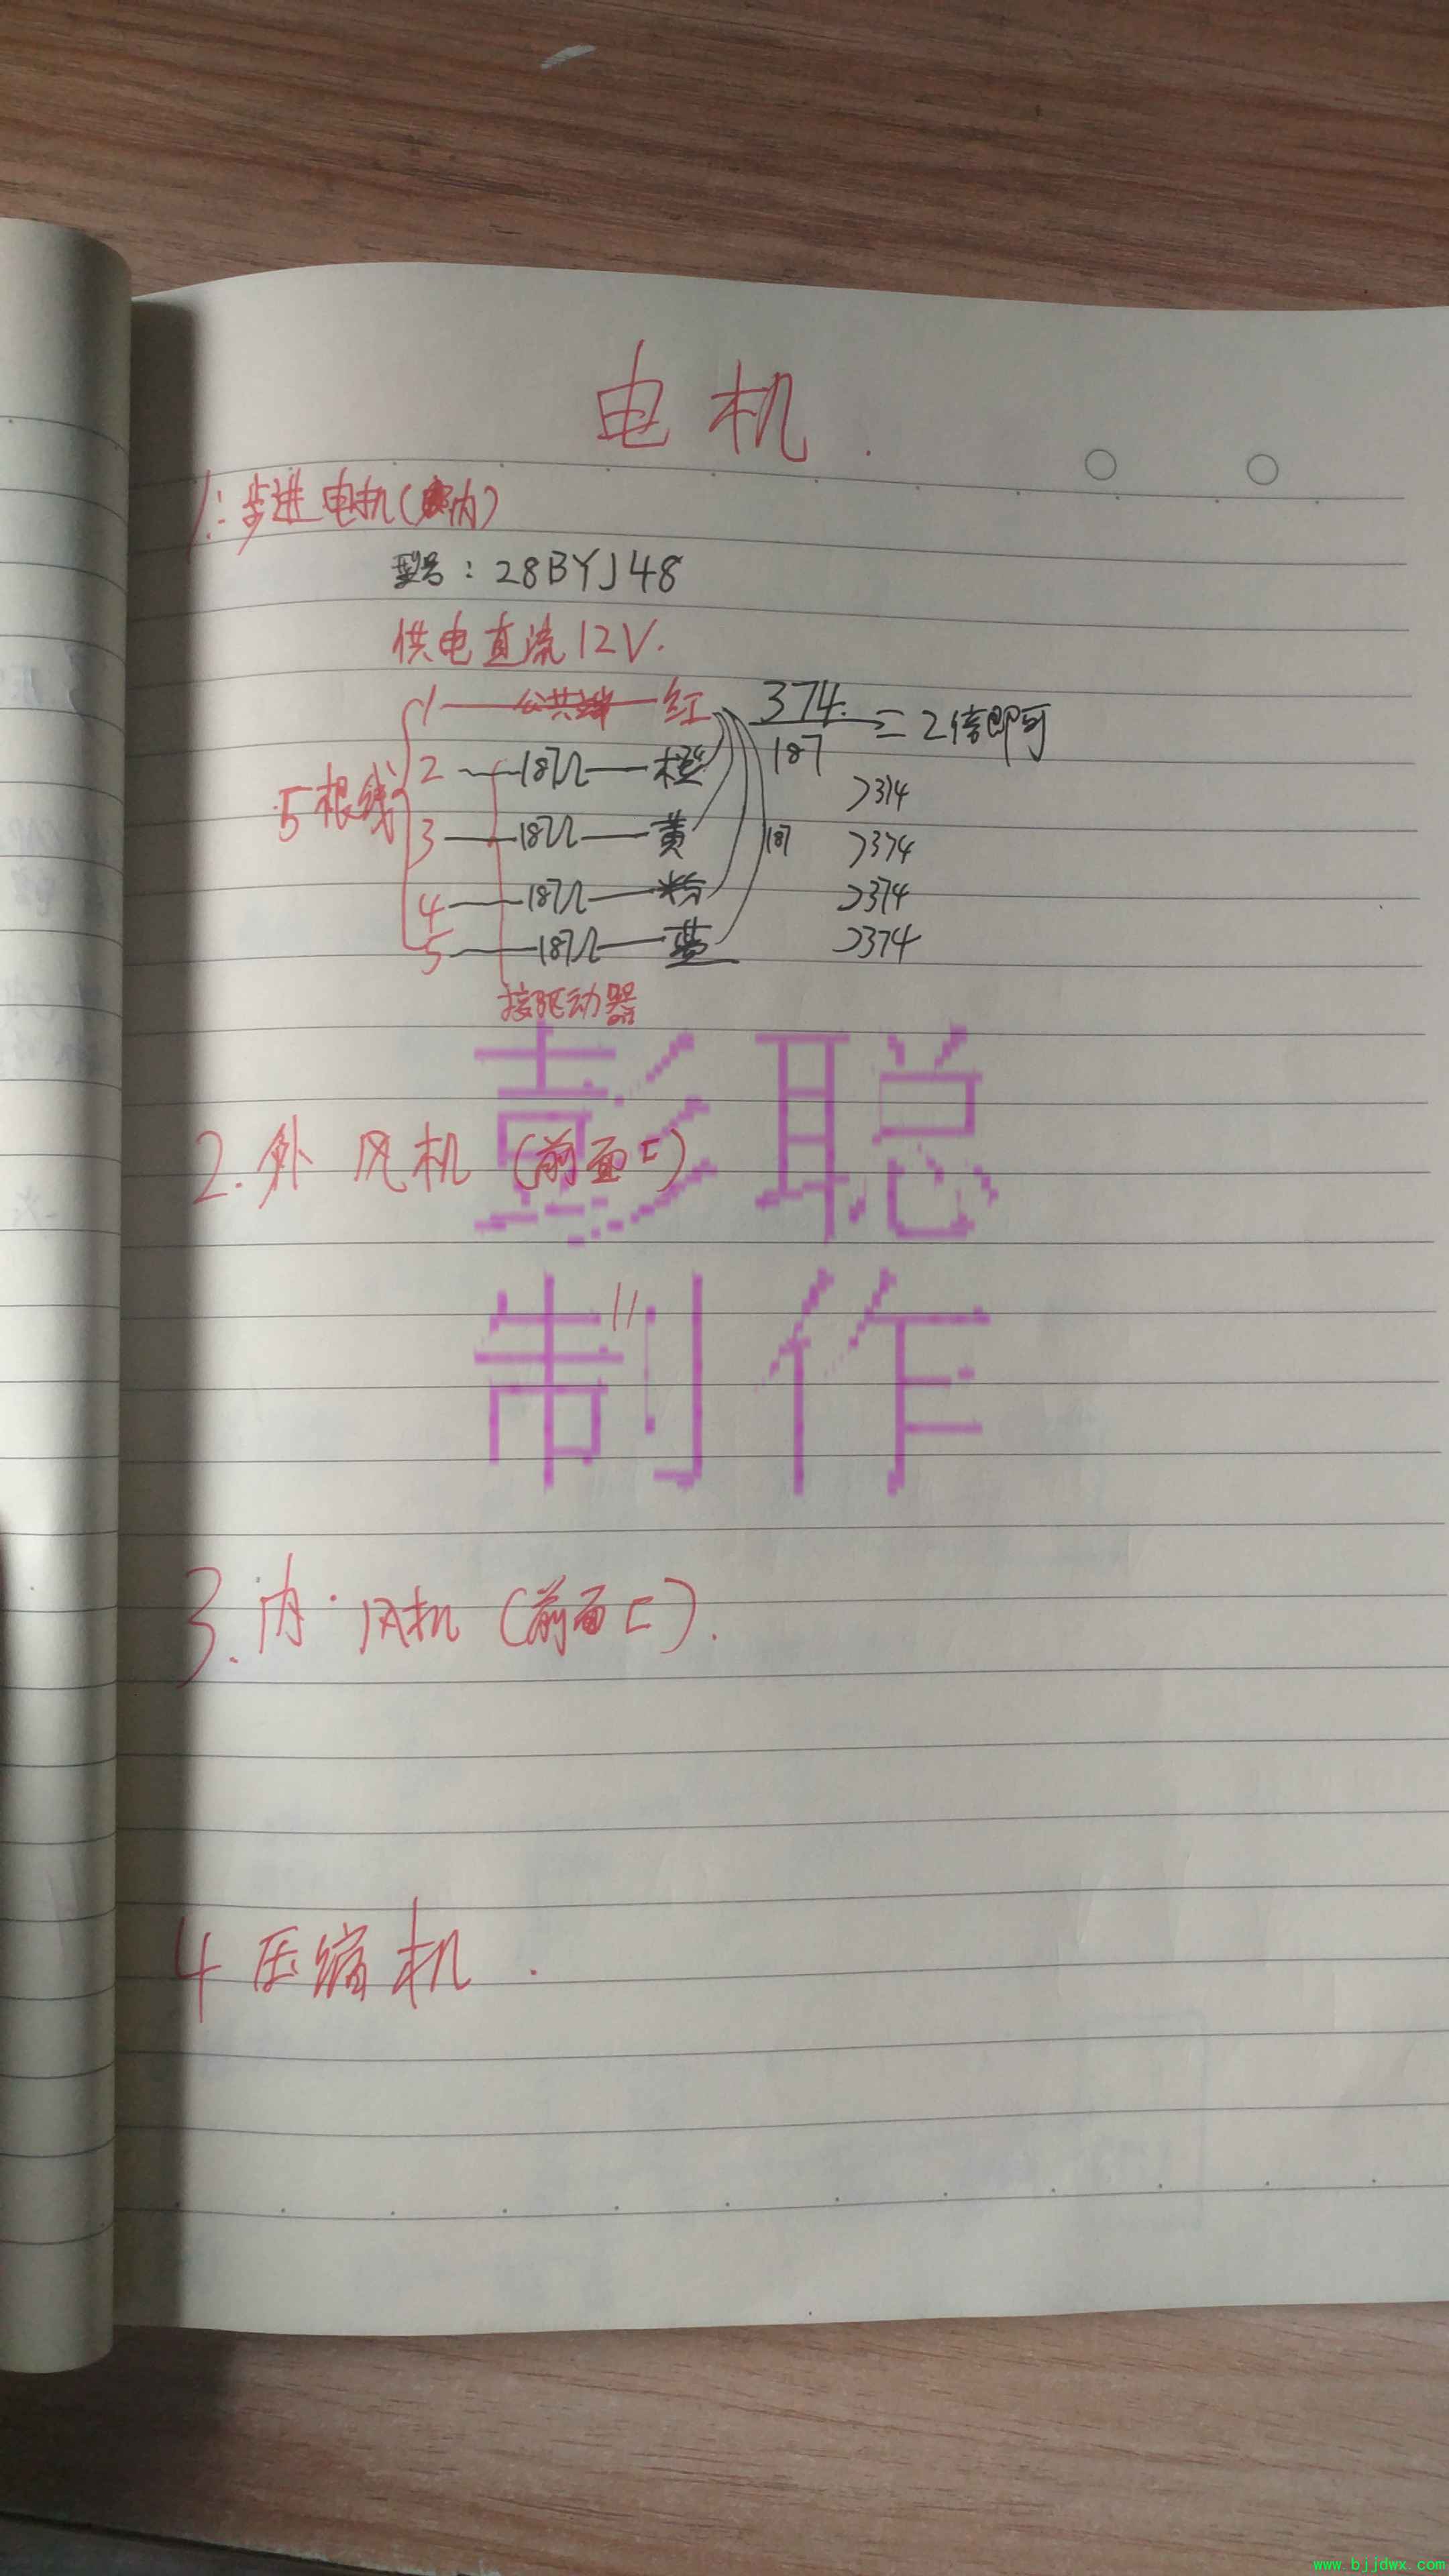 电机.
1:步进电机(内)
型号:28BYJ48
供电直流12V.
5根线
1——公共端——红
2——187Ω——橙
3——187Ω——黄
4——187Ω——粉
5——187Ω——蓝
374.
187
=2倍即可
187
>374
>374
>374
>374
接驱动器
彭聪
2.外风机(前面匚)
制作
11
3.内·风机(前面匚).
4 压缩机.
www.bjjdwx.com